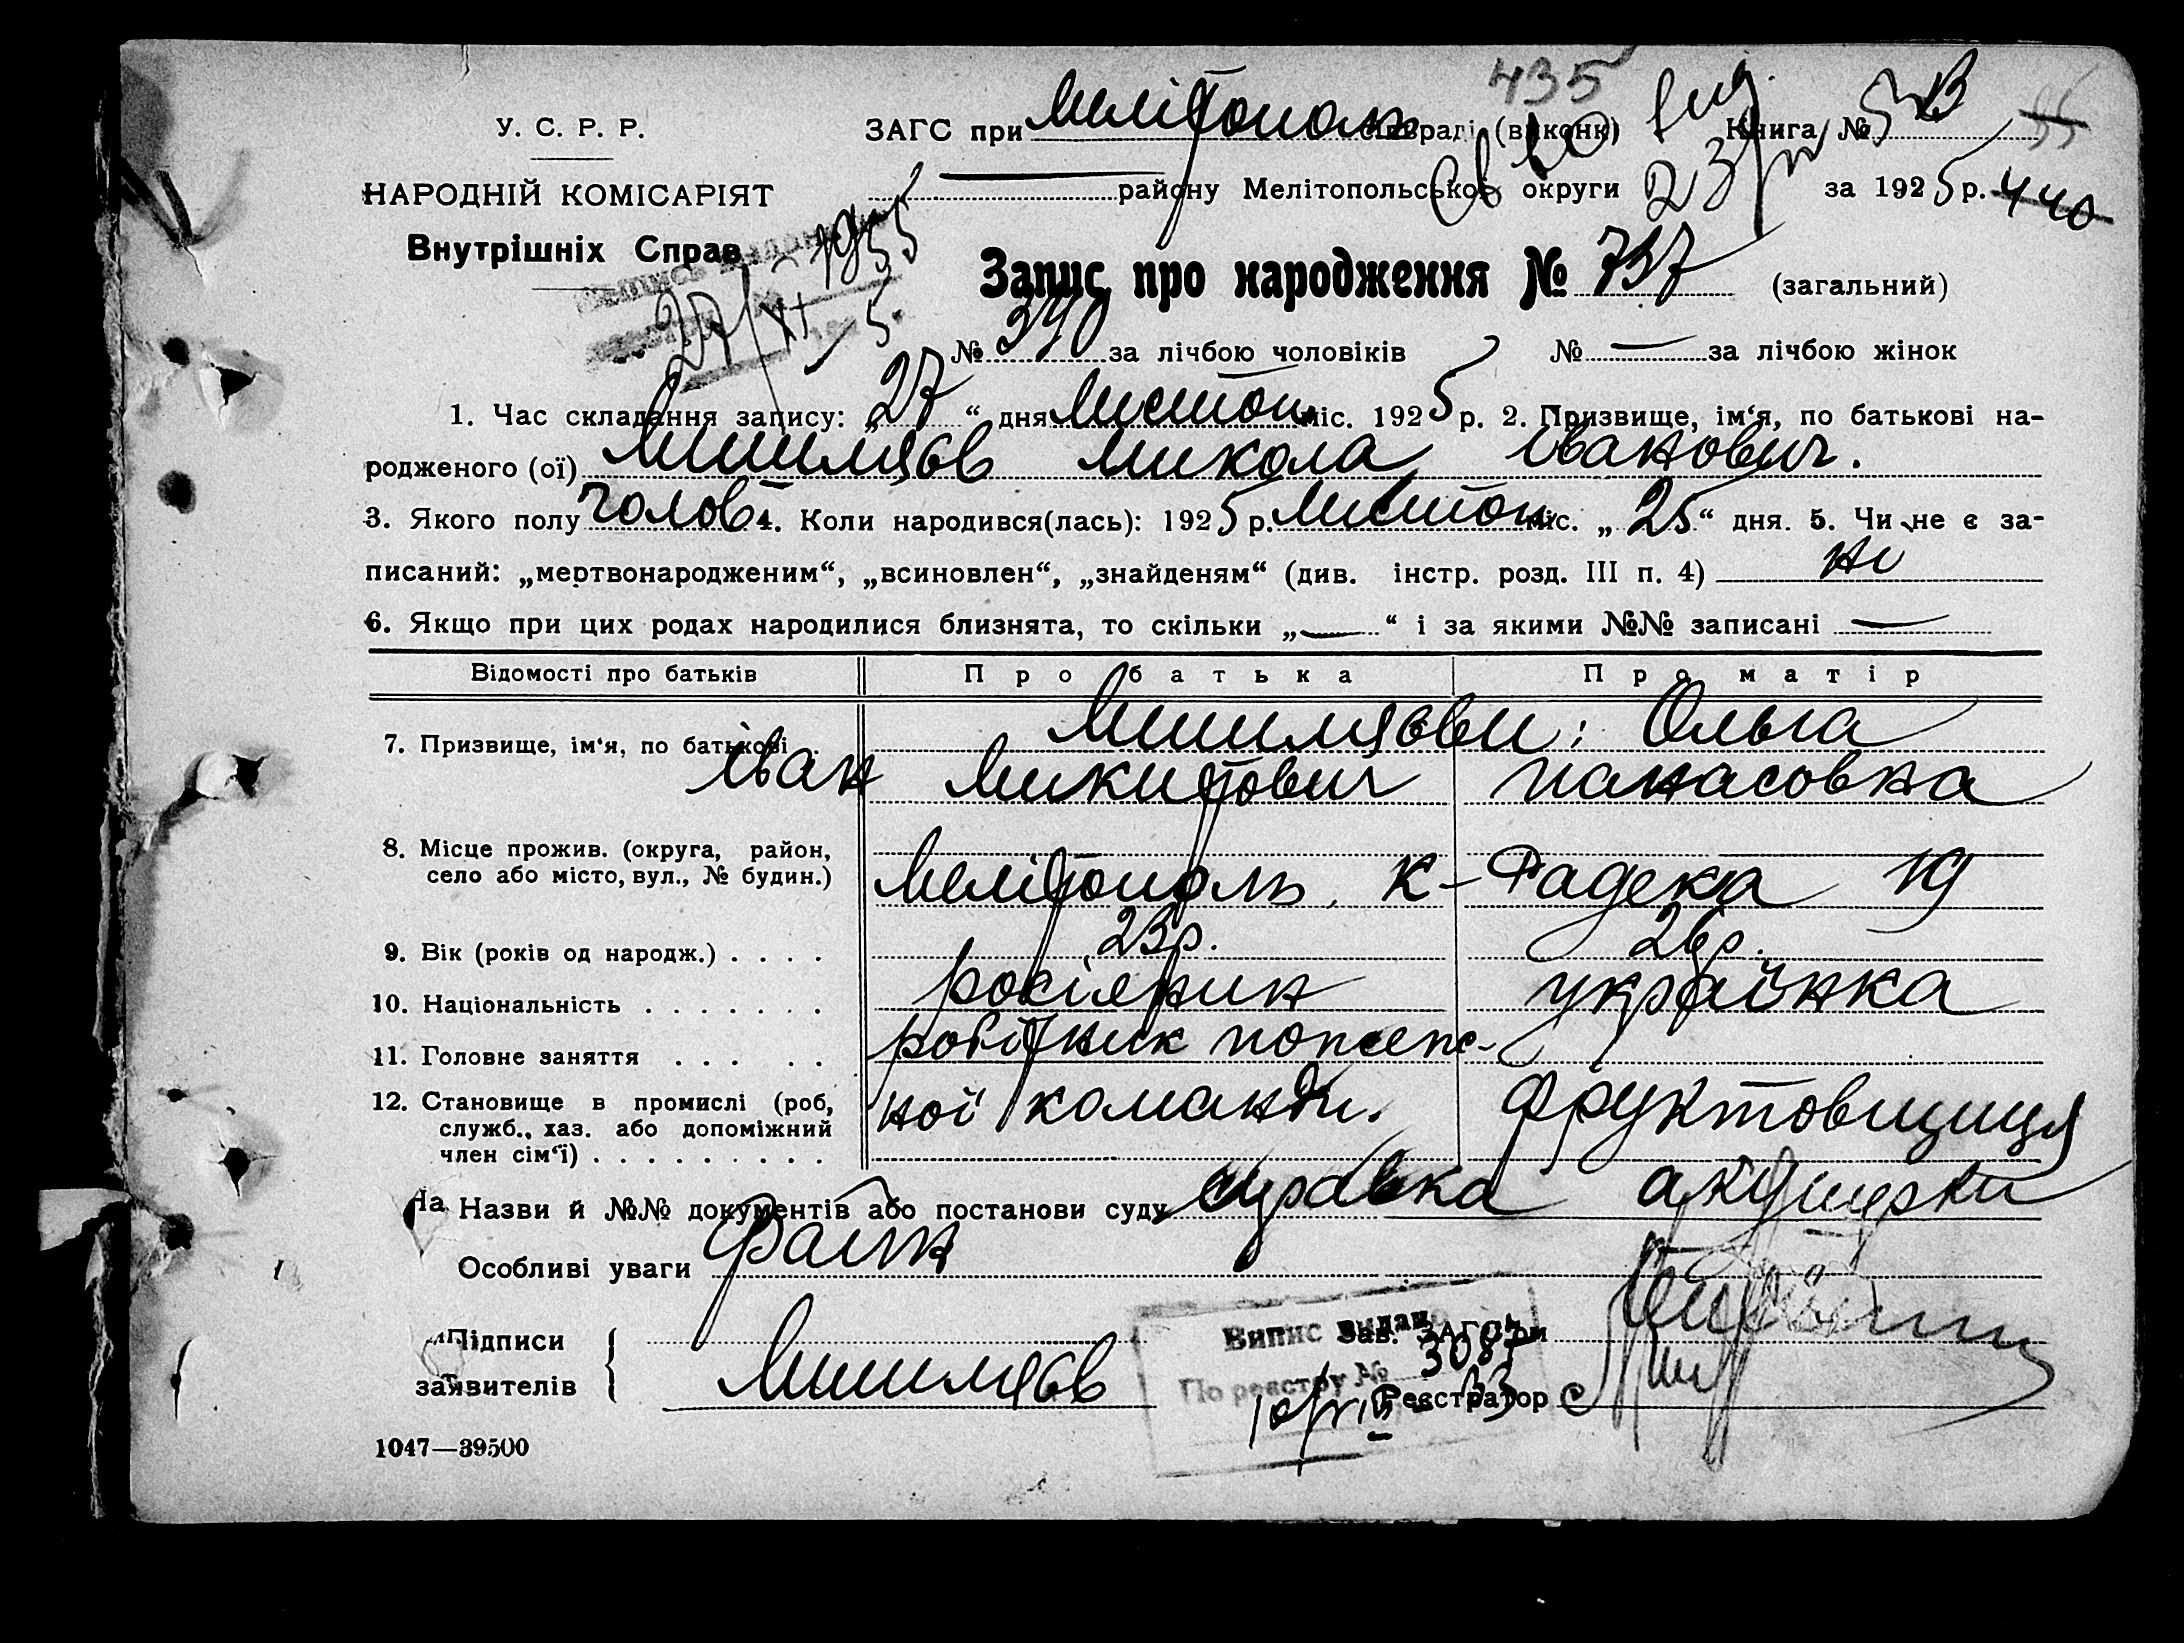 435
У. С. Р. Р.
ЗАГС при Мелітополь сільраді (виконк) Книга № 5 В
НАРОДНІЙ КОМІСАРІЯТ
району Мелітопольської округи за 1925 р. 440
Внутрішніх Справ
27/XI 1955
Запис про народження № 737 (загальний)
№ 390 за лічбою чоловіків № — за лічбою жінок
1. Час складання запису: „27“ дня Листоп. міс. 1925 р. 2. Призвище, ім‘я, по батькові на-
родженого (ої) Микола Іванович.
3. Якого полу голов. 4. Коли народився(лась): 1925 р. Листоп. міс. „25“ дня. 5. Чи не є за-
писаний: „мертвонародженим“, „всиновлен“, „знайденям“ (див. інстр. розд. III п. 4) ні
6. Якщо при цих родах народилися близнята, то скільки „—“ і за якими №№ записані —
Відомості про батьків Про батька Про матір
7. Призвище, ім‘я, по батькові Ольга
Іван Микитович Панасовна
8. Місце прожив. (округа, район,
село або місто, вул., № будин.) Мелітополь, К-Радека 19
9. Вік (років од народж.) 23 р. 26 р.
10. Національність росіянин українка
11. Головне заняття робітник пожеж-
12. Становище в промислі (роб, ної команди. фруктовщиця
служб., хаз. або допоміжний
член сім‘ї)
На Назви й №№ документів або постанови суду справка акушерки
Особливі уваги
Підписи
Випис видано
Зав. ЗАГС‘ри
3087
заявителів
По реєстру №
Реєстратор
1047—39500